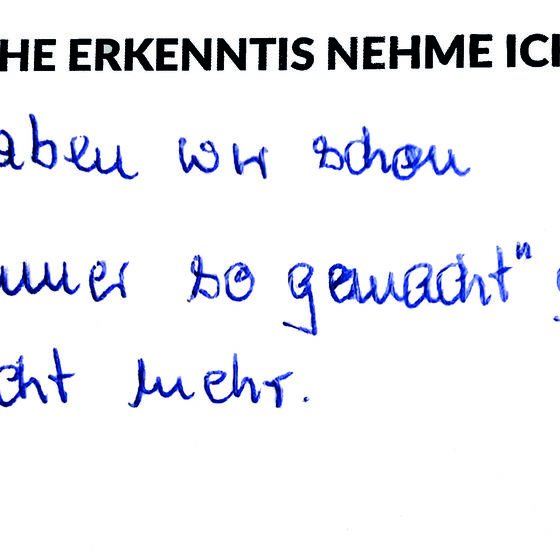 HE ERKENNTIS NEHME ICH
aben wir schon
mmer so gemacht" g
cht mehr.